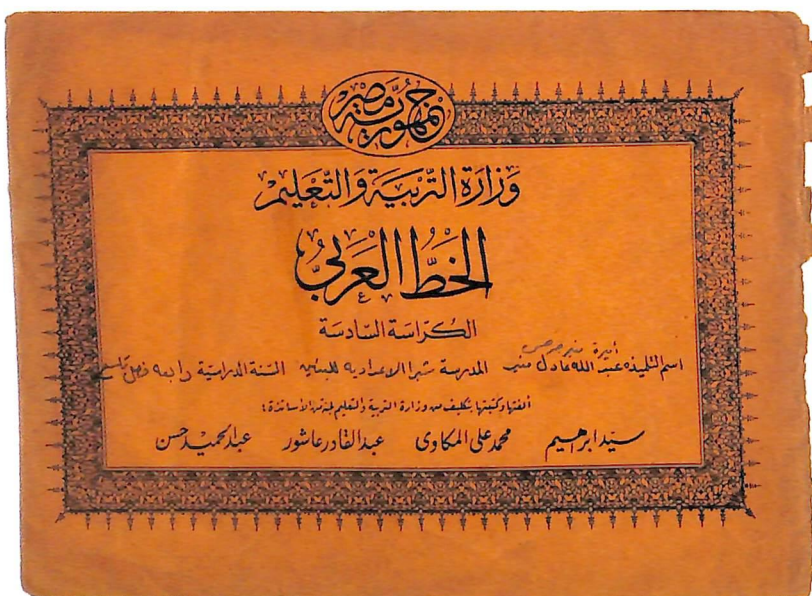 جمهورية مصر
وزارة التربية والتعليم
الخط العربي
الكراسة السادسة
أميرة
اسم التلميذ عبد الله عادل منير المدرسة شبرا الاعداديه للبنين السنة الدراسية رابعه فصل
ألفها وكتبها بتكليف من وزارة التربية والتعليم لجنة من الأساتذة :
سيد ابراهيم محمد على المكاوى عبد القادر عاشور عبد الحميد حسن